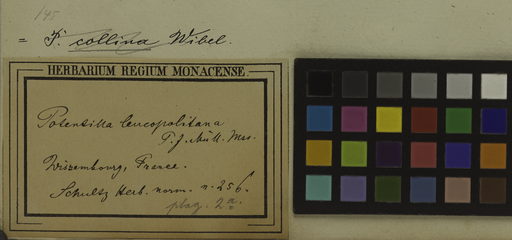 145
= P. collina Wibel.
HERBARIUM REGIUM MONACENSE.
Potentilla leucopolitana
P. J. Müll. Mss.
Wissembourg, France.
Schultz Herb. norm. n. 256.
plag. 2a.